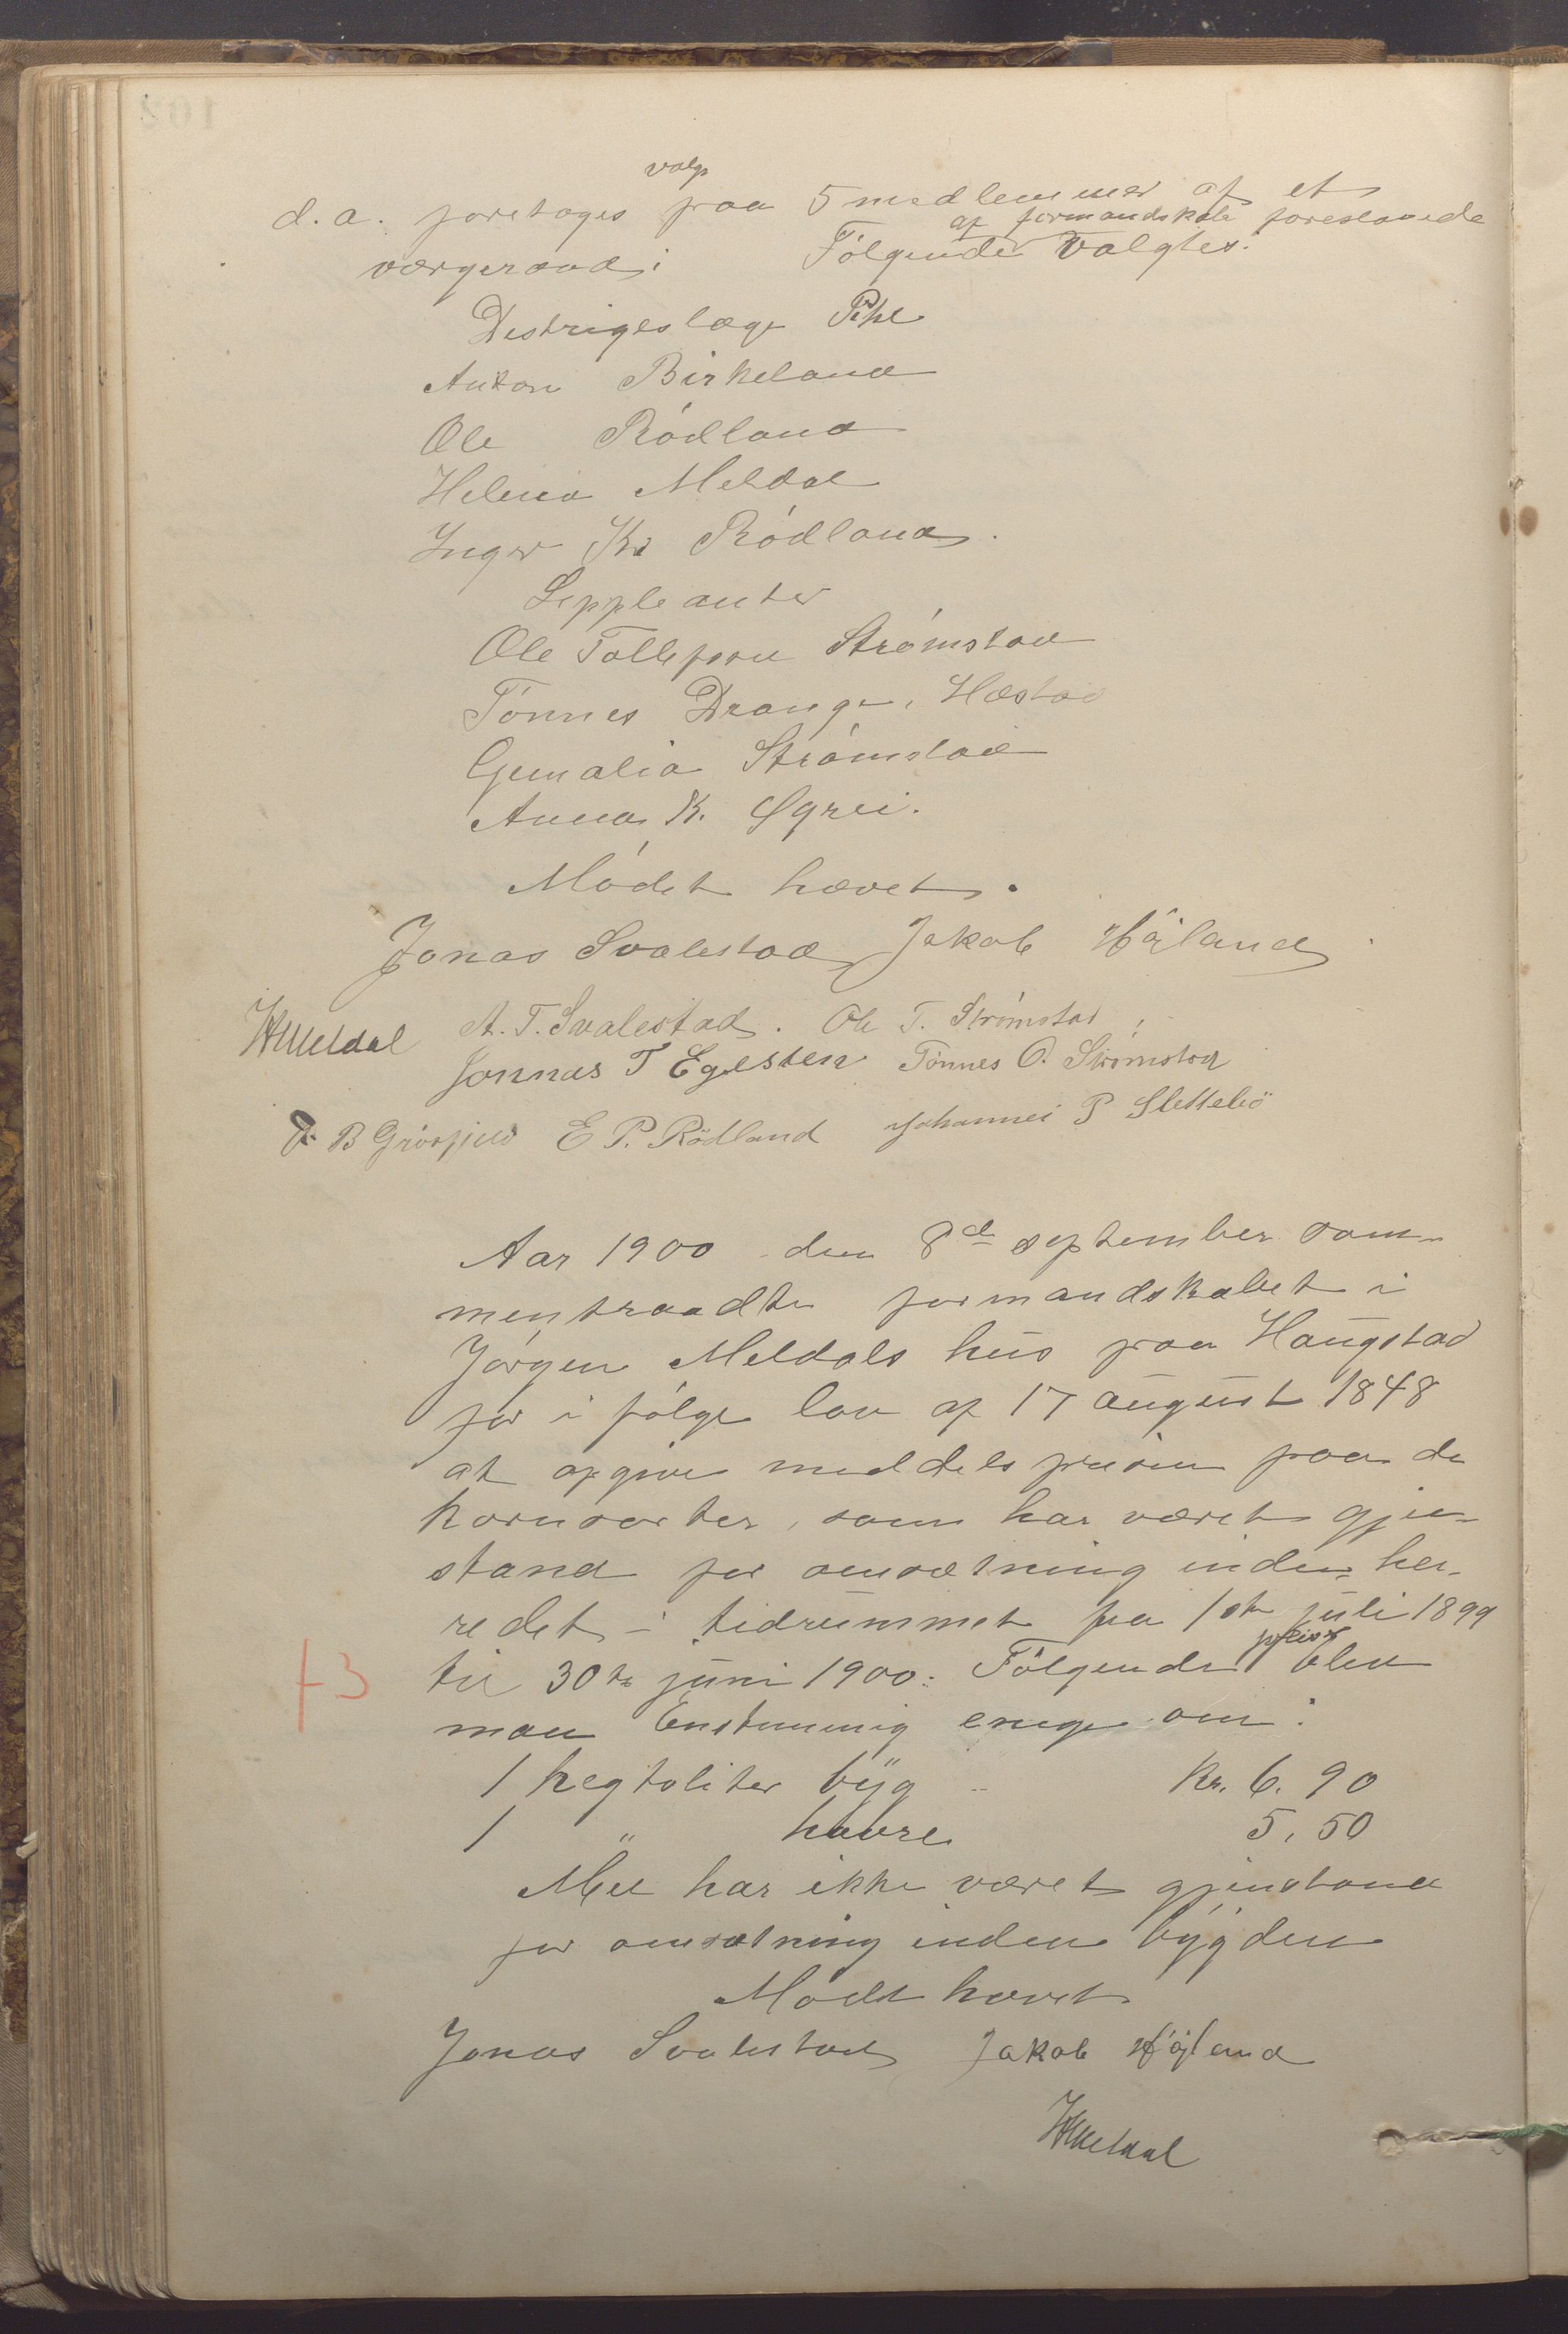 d. a. foretoges valg paa 5 medlemmer af et
værgeraad; Følgende af formandskab foreslaaede valgtes:
Destrigtslæge Pihl
Anton Birkeland
Ole Rødland
Helena Meldal
Inger Kr Rødland.
Suppleanter
Ole Tollefsen Strømstad
Tønnes Drange, Hæstad
Gemalia Strømstad
Anna K. Øgrei.
Mødet hævet.
Jonas Svalestad Jakob Håland
JHMeldal A. T. Svalestad. Ole T. Strømstad
Jonnas T Egesten Tønnes O. Strømstad
B Grøsfjeld E P. Rødland Johannes P Slettebø
Aar 1900 den 8de september sam-
mentraadte formandskabet i
Jørgen Meldals hus paa Haugstad
for i følge lov af 17 august 1848
at opgive middelsprisen paa de
kornsorter, som har været gjen-
stand for omsætning inden her-
redet i tidrummet fra 1ste juli 1899
til 30te juni 1900: Følgende priser blev
man Enstemmig enige om:
1 hegtoliter byg - Kr. 6. 90
1 " havre 5, 50
Mel har ikke været gjenstand
for omsætning inden bygden
Mødet hævet
Jonas Svalestad Jakob Håland
JHMeldal